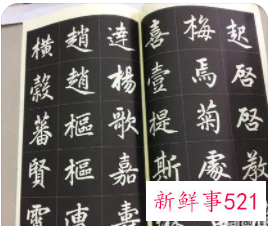 起啓啓教
梅焉菊處
喜壹提斯
達楊歌嘉壽
趙趙樞樞連
橫穀蕃賢霄
新鲜事521